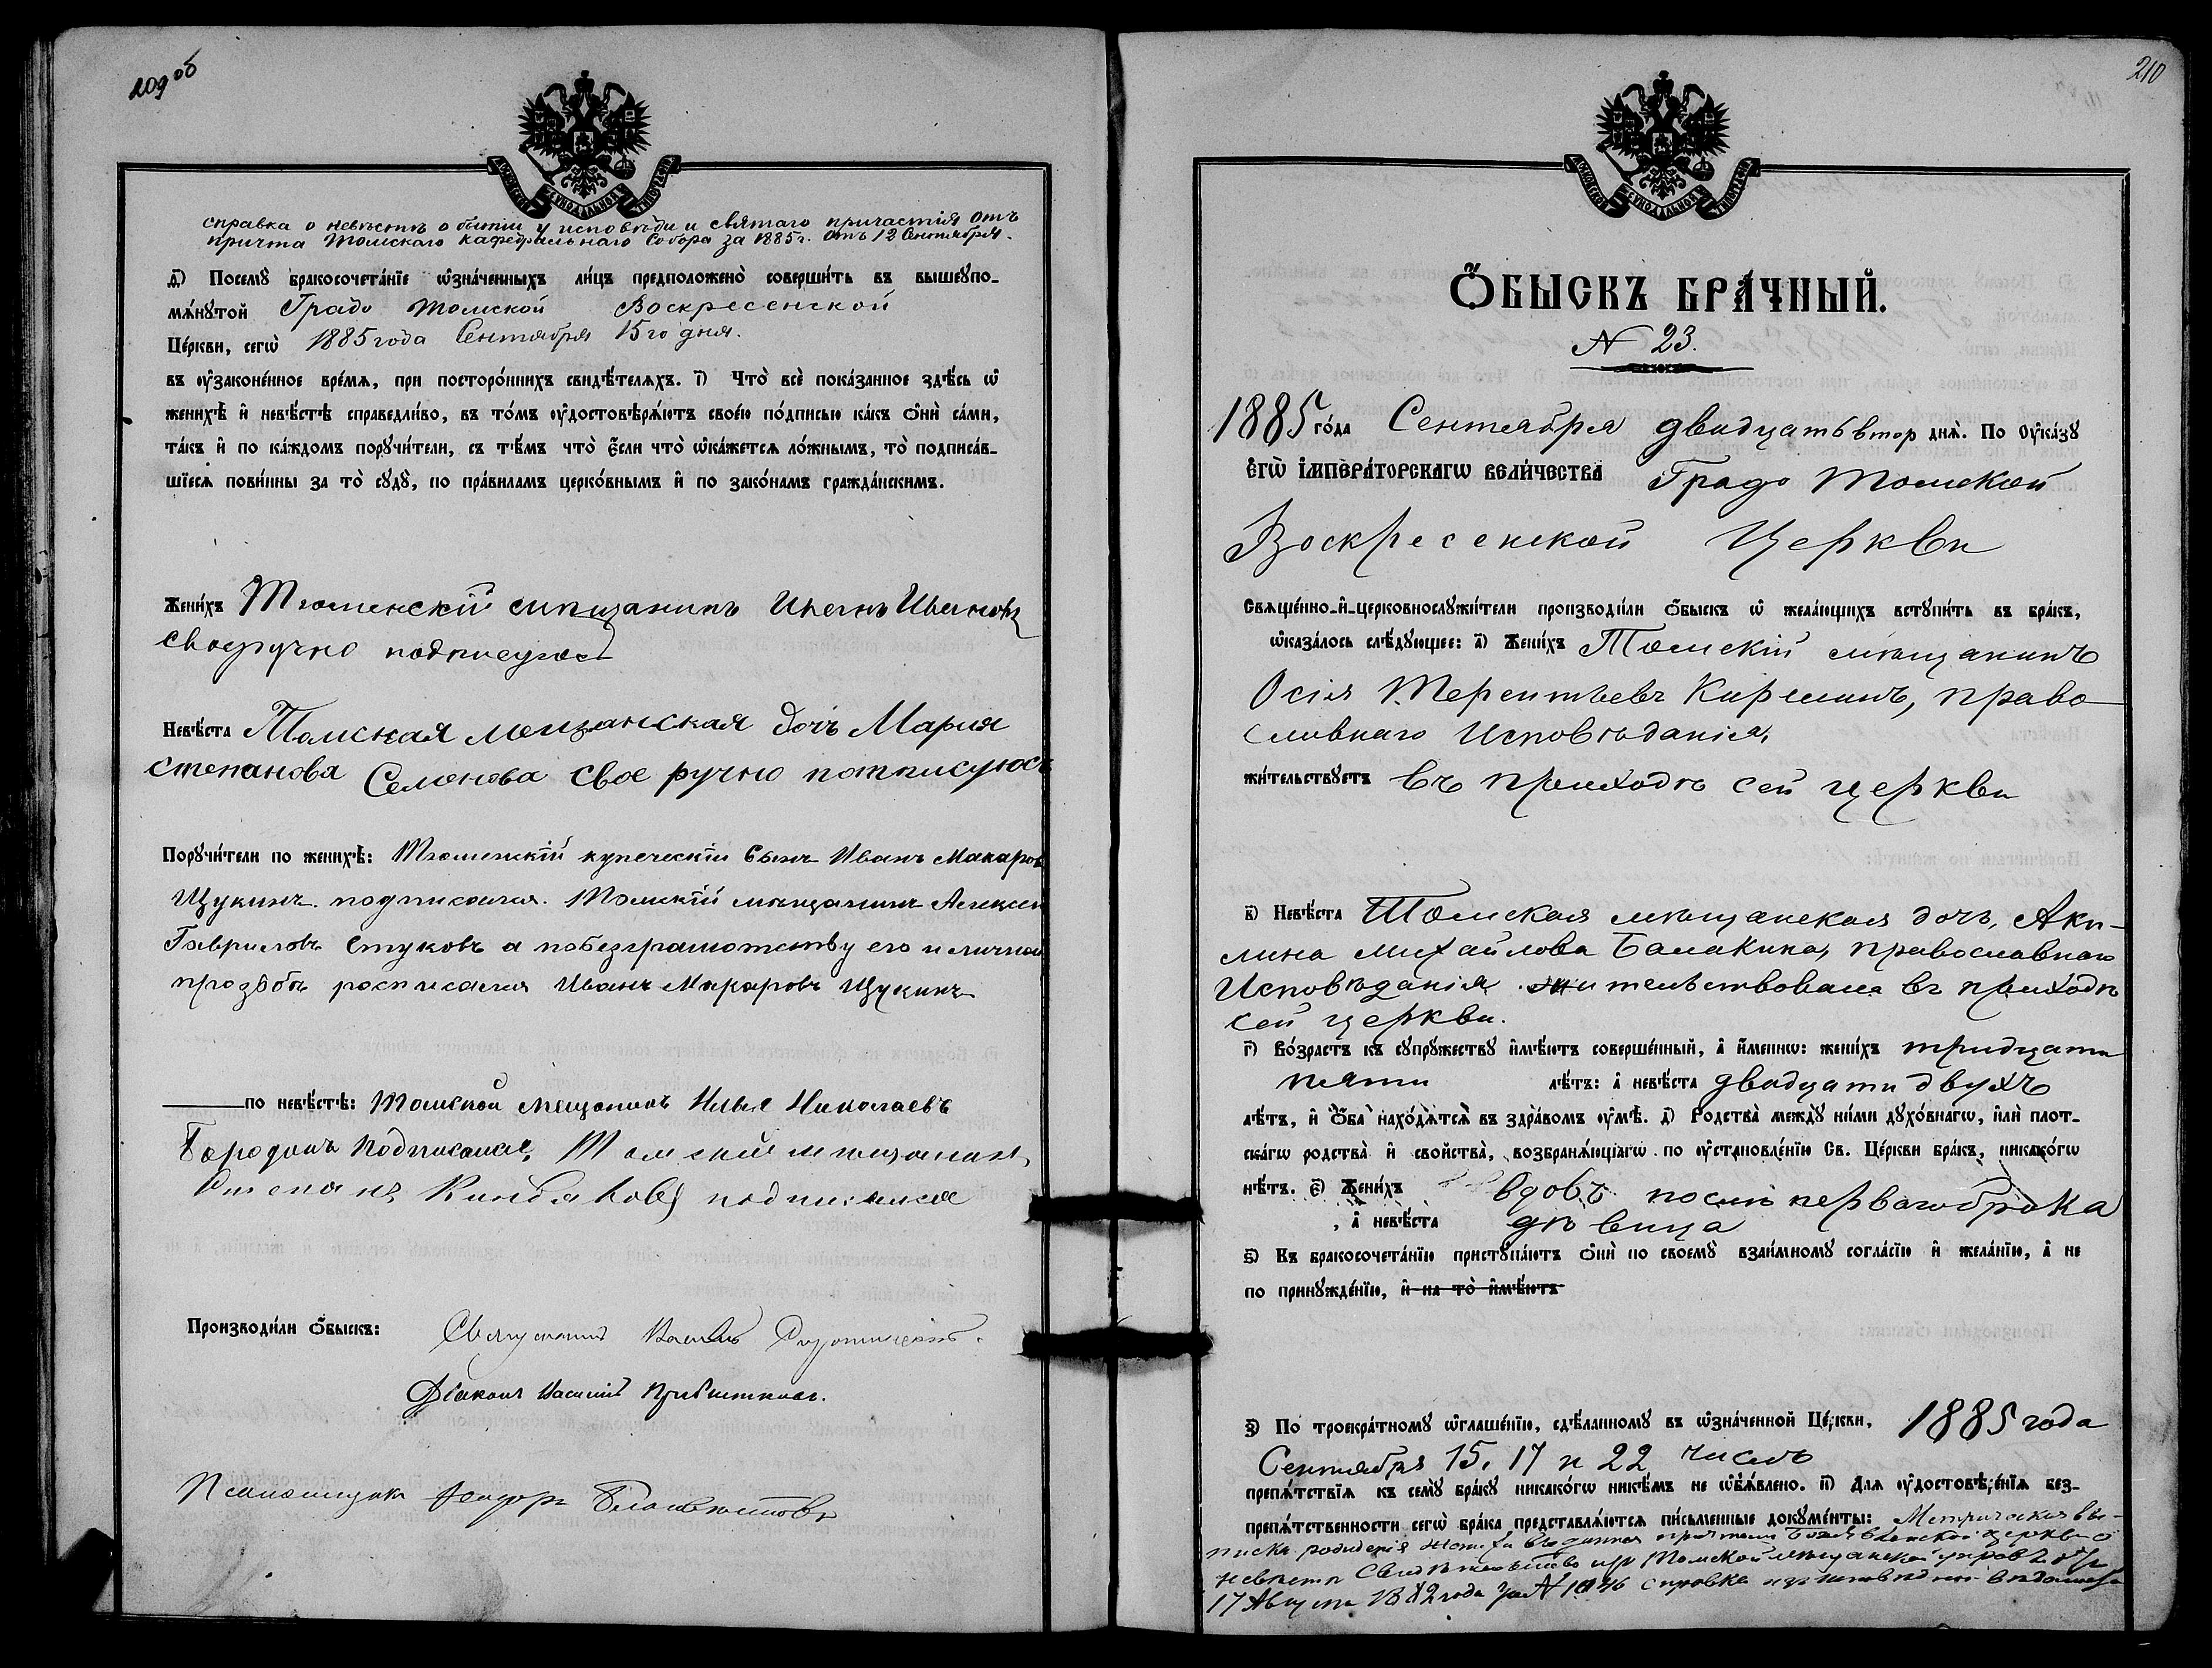 209 об
справка о невѣстѣ о бытіи у исповѣди и святаго причастія отъ
причта Томскаго Кафедральнаго Собора за 1885 г. отъ 12 Сентября.
д҃і) Посемꙋ̀ бракосочета́нїе ѡ҆зна́ченныхъ ли́цъ предположено̀ соверши́ть въ вышеꙋпо-
мѧ́нꙋтой Градо Томской Воскресенской
Це́ркви, сегѡ̀ 1885 года Сентября 15го дня.
въ оу҆зако́ненное вре́мѧ, при посторо́ннихъ свидѣ́телѧхъ. і҃) Что̀ всѐ пока́занное здѣ́сь ѡ҆
женихѣ̀ и҆ невѣ́стѣ справедли́во, въ то́мъ оу҆достовѣрѧ́ютъ свое́ю по́дписью ка́къ ѻ҆нѝ са́ми,
та́къ и҆ по ка́ждомъ порꙋчи́тели, съ тѣ́мъ что̀ є҆́сли что̀ ѡ҆ка́жетсѧ ло́жнымъ, то̀ подписа́в-
шїесѧ пови́нны за то̀ сꙋдꙋ̀, по пра́виламъ церко́внымъ и҆ по зако́намъ гражда́нскимъ.
Жени́хъ Тюменскій мищанинъ Иванъ Ивановъ
своеручно подписуюсь
Невѣ́ста Томская мещанская дочь Мария
степанова Семонова свое ручно потписуюсь
Порꙋчи́тели по женихѣ̀: Тюменскій купеческій сынъ Иванъ Макаров
Щукинъ подписался. Томскій мѣщанинъ Алексей
Гавриловъ Стуковъ а по безграмотству его и личной
прозьбѣ росписался Иванъ Макаровъ Щукинъ
по невѣ́стѣ: Томской мещонинъ Илья Николаевъ
Бородинъ подписался, Томский мѣщанинъ
Степанъ подписался
Производи́ли ѻ҆́быскъ: Священникъ
Діаконъ Василій
Псаломщикъ Феодоръ
210
Ѻ҆́БЫСКЪ БРА́ЧНЫЙ.
N 23.
1885 го́да Сентября двадцать втор днѧ̀. По Оу҆ка́зꙋ
Е҆ГѠ̀ І҆МПЕРА́ТОРСКАГѠ ВЕЛИ́ЧЕСТВА Градо Томской
Воскресенской Церкви
Свѧще́нно-и҆-церковнослꙋжи́тели производи́ли ѻ҆́быскъ ѡ҆ жела́ющихъ встꙋпи́ть въ бра́къ,
ѡ҆каза́лось слѣ́дꙋющее: а҃) Жени́хъ Томскій мѣщанинъ
Осія Терентьевъ Киршинъ, право
славнаго Исповѣданія,
жи́тельствꙋетъ въ приходѣ сей церкви
в҃) Невѣ́ста Томская мѣщанская дочь, Аки-
лина Михайлова Балакина, православнаго
Исповѣданія жительствовала въ приходѣ
сей церкви.
г҃) Во́зрастъ къ сꙋпрꙋ́жествꙋ и҆мѣ́ютъ соверше́нный, а҆ и҆́меннѡ: жени́хъ тридцати
пяти лѣ́тъ: а҆ невѣ́ста двадцати двухъ
лѣ́тъ, и҆ ѻ҆́ба нахо́дѧтсѧ въ здра́вомъ оу҆мѣ̀. д҃) Родства̀ междꙋ̀ ни́ми дꙋхо́внагѡ, и҆лѝ плот-
ска́гѡ родства̀ и҆ свойства̀, возбранѧ́ющагѡ по оу҆становле́нїю Св. Це́ркви бра́къ, никако́гѡ
нѣ́тъ. є҃) Жени́хъ вдовъ послѣ перваго брака
, а҆ невѣ́ста дѣвица
ѕ҃) Къ бракосочета́нїю пристꙋпа́ютъ ѻ҆нѝ по своемꙋ̀ взаи́мномꙋ согла́сїю и҆ жела́нїю, а҆ не
по принꙋжде́нїю, и҆ на то̀ и҆мѣ́ютъ
з҃) По троекра́тномꙋ ѡ҆глаше́нїю, сдѣ́ланномꙋ въ ѡ҆зна́ченной Це́ркви, 1885 года
Сентября 15, 17 и 22 числъ
препѧ́тствїѧ къ семꙋ̀ бра́кꙋ никако́гѡ никѣ́мъ не ѡ҆б̾ѧ́влено. и҃) Для оу҆достовѣ́ренїѧ без-
препѧ́тственности сегѡ̀ бра́ка представлѧ́ютсѧ пи́сьменные докꙋме́нты: Метрическая вы-
писка рождения жениха выданная причтомъ церкви о
невѣстѣ Свидѣтельство изъ Томской мѣщанской управы отъ
17 Августа 1882 года за N 1046 справка